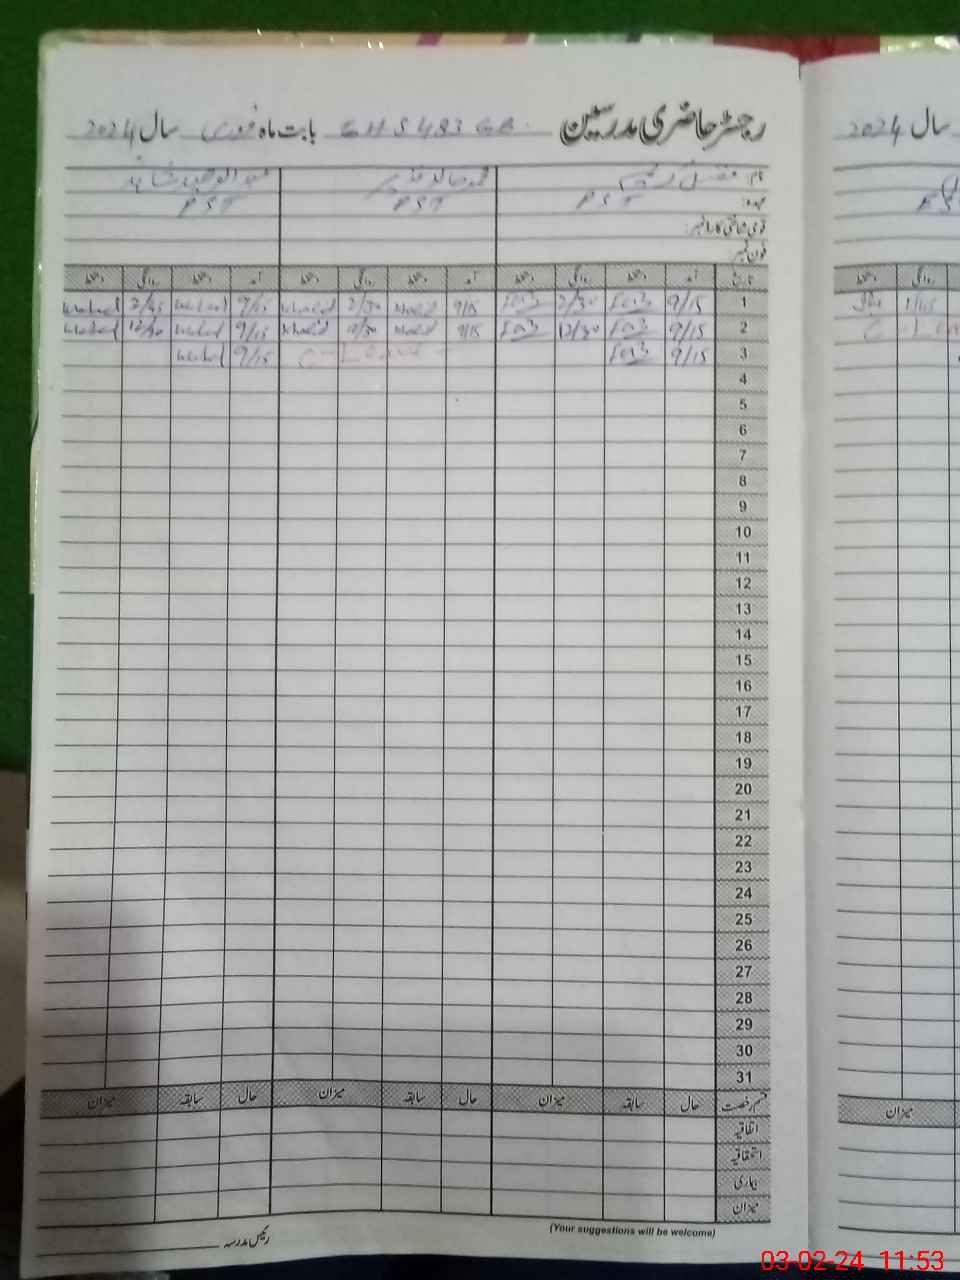 رجسٹر حاضری مدرسین GHS 483 GB بابت ماہ فروری سال 2024
نام:
عہدہ: PST PST PST
قومی شناختی کارڈ نمبر:
فون نمبر:
تاریخ آمد دستخط روانگی دستخط آمد دستخط روانگی دستخط آمد دستخط روانگی دستخط
1 9/15 2/30 9/15 Khalid 2/30 Khalid 9/15 Waheed 2/45 Waheed
2 9/15 12/30 9/15 Khalid 12/30 Khalid 9/15 Waheed 12/30 Waheed
3 9/15 C-Leave 9/15 Waheed
4
5
6
7
8
9
10
11
12
13
14
15
16
17
18
19
20
21
22
23
24
25
26
27
28
29
30
31
قسم رخصت حال سابقہ میزان حال سابقہ میزان حال سابقہ میزان
اتفاقیہ
استحقاقیہ
بیماری
میزان
(Your suggestions will be welcome)
رئیس مدرسہ
سال 2024
دستخط روانگی
1/15
میزان
03-02-24 11:53